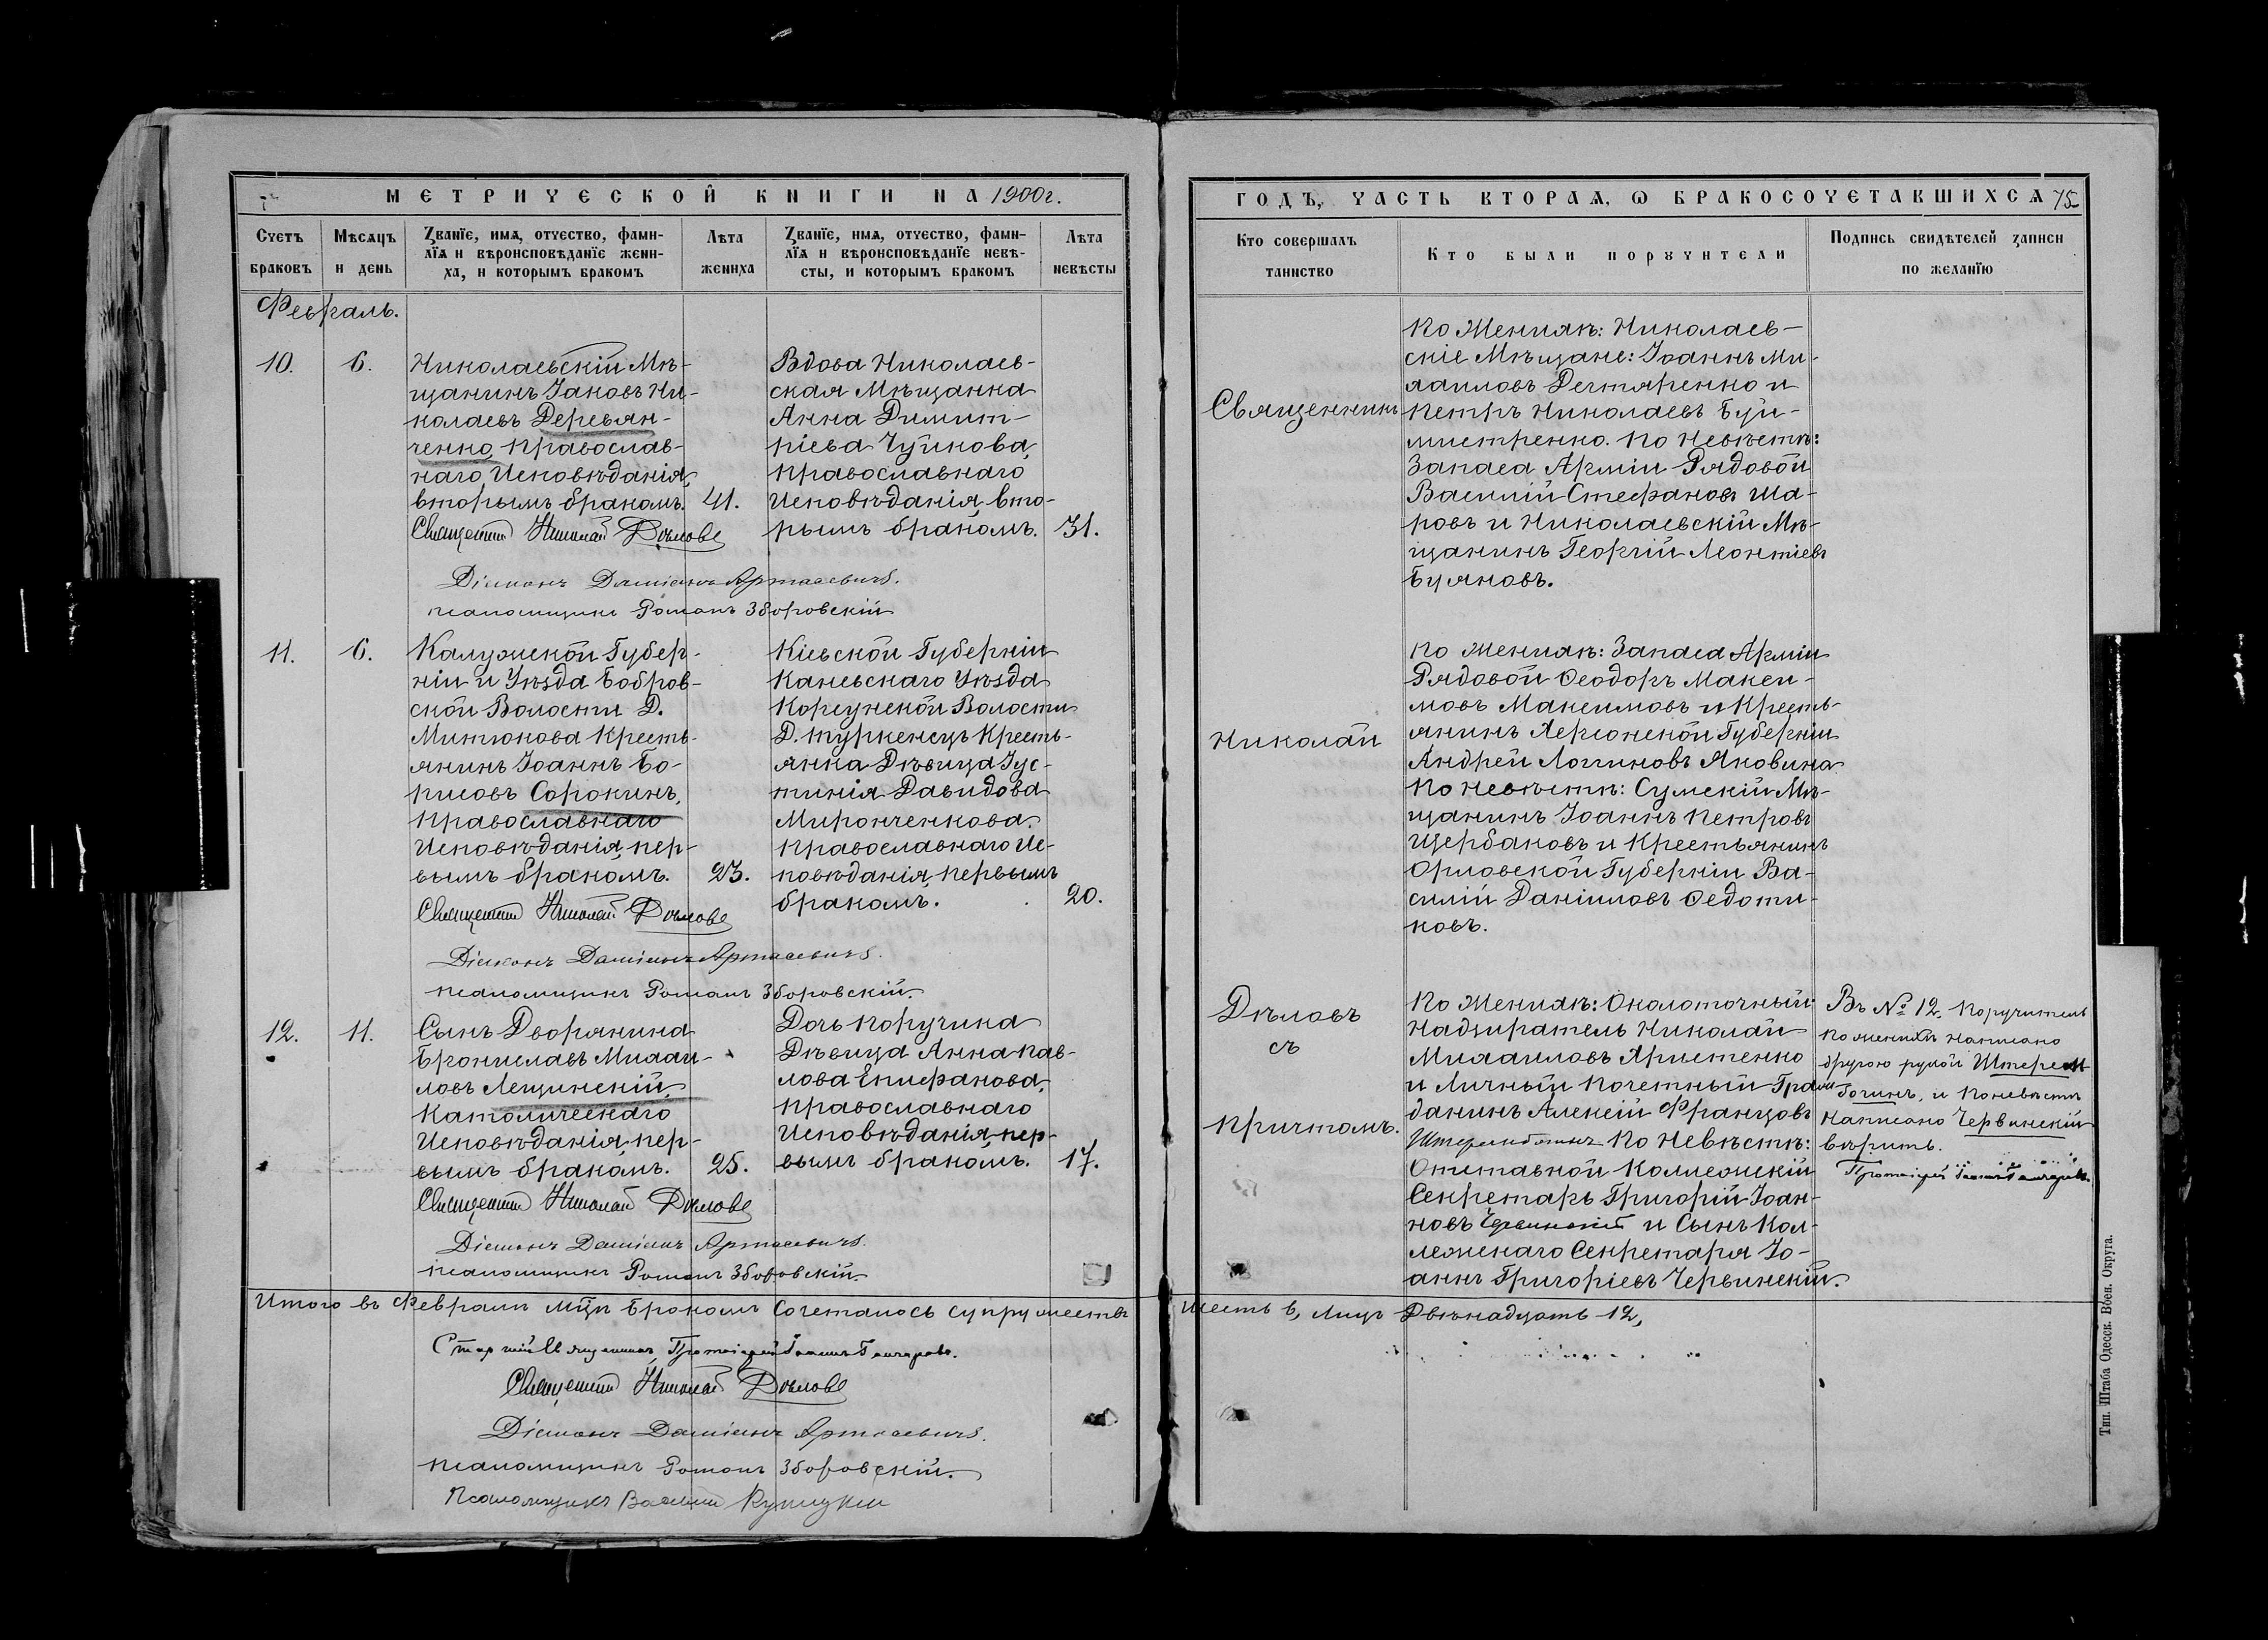 МЕТРИЧЕСКОЙ КНИГИ НА 1900г.
Счетъ браковъ
Мѣсяцъ и день
Званїе, имя, отчество, фами-
лїя и вѣроисповѣданїе жени-
ха, и которымъ бракомъ
Лѣта жениха
Званїе, имя, отчество, фами-
лїя и вѣроисповѣданїе невѣ-
сты, и которымъ бракомъ
Лѣта невѣсты
Февраль.
10.
6.
Николаевскій Мѣ-
щанинъ Іаковъ Ни-
колаевъ Деревян-
ченко, Православ-
наго Исповѣданія,
вторымъ бракомъ.
41.
Вдова Николаев-
ская Мѣщанка
Анна Димит-
ріева Чуйкова,
Православнаго
Исповѣданія, вто-
рымъ бракомъ.
31.
Священникъ Николай Дѣловъ
Діаконъ Даміанъ Артасевичъ.
Псаломщикъ Романъ Зборовскій
11.
6.
Калужской Губер-
ніи и Уѣзда Бобров-
ской Волости Д.
Митюкова Кресть-
янинъ Іоаннъ Бо-
рисовъ Сорокинъ,
Православнаго
Исповѣданія, пер-
вымъ бракомъ.
23.
Кіевской Губерніи
Каневскаго Уѣзда
Корсунской Волости
Д. Туркенецъ Кресть-
янка Дѣвица Іус-
тинія Давидова
Миронченкова.
Православнаго Ис-
повѣданія, первымъ
бракомъ.
20.
Священникъ Николай Дѣловъ
Діаконъ Даміанъ Артасевичъ.
Псаломщикъ Романъ Зборовскій.
12.
11.
Сынъ Дворянина
Брониславъ Михаи-
ловъ Лещинскій,
Католическаго
Исповѣданія, пер-
вымъ бракомъ.
25.
Дочь Поручика
Дѣвица Анна Пав-
лова Епифанова,
Православнаго
Исповѣданія, пер-
вымъ бракомъ.
17.
Священникъ Николай Дѣловъ
Діаконъ Даміанъ Артасевичъ.
Псаломщикъ Романъ Зборовскій.
Итого въ Февралѣ Мцѣ Бракомъ Сочеталось супружествъ
Старшій Священникъ, Протоіерей Іоаннъ Гончаровъ.
Священникъ Николай Дѣловъ
Діаконъ Даміанъ Артасевичъ.
Псаломщикъ Романъ Зборовскій.
Псаломщикъ Василій
ГОДЪ, ЧАСТЬ ВТОРАЯ, Ѡ БРАКОСОЧЕТАВШИХСЯ 75
Кто совершалъ таинство
Кто были поручители
Подпись свидѣтелей записи
по желанїю
Священникъ
Николай
Дѣловъ
съ
Причтомъ.
По Женихѣ: Николаев-
скіе Мѣщане: Іоаннъ Ми-
хаиловъ Дегтяренко и
Петръ Николаевъ Буй-
мистренко. По Невѣстѣ:
Запаса Арміи Рядовой
Василій Стефановъ Ша-
ровъ и Николаевскій Мѣ-
щанинъ Георгій Леонтіевъ
Буяновъ.
По Женихѣ: Запаса Арміи
Рядовой Ѳеодоръ Макси-
мовъ Максимовъ и Кресть-
янинъ Херсонской Губерніи
Андрей Логиновъ Яковина
По Невѣстѣ: Сумскій Мѣ-
щанинъ Іоаннъ Петровъ
Щербаковъ и Крестьянинъ
Орловской Губерніи Ва-
силій Даніиловъ Ѳедоти-
ковъ.
По Женихѣ: Околоточный
Надзиратель Николай
Михаиловъ Христенко
и Личный Почетный Граж-
данинъ Алексій Францовъ
По Невѣстѣ:
Отставной Коллежскій
Секретарь Григорій Іоан-
новъ Червинскій и Сынъ Кол-
лежскаго Секретаря Іо-
аннъ Григоріевъ Червинскій.
Въ № 12. Поручитель
по женихѣ написано
другою рукой
и по невѣстѣ
написано Червинскій
вѣрить.
Протоіерей Іоаннъ Гончаровъ.
шесть 6, Лицъ Двѣнадцать 12,
Тип. Штаба Одесск. Воен. Округа.